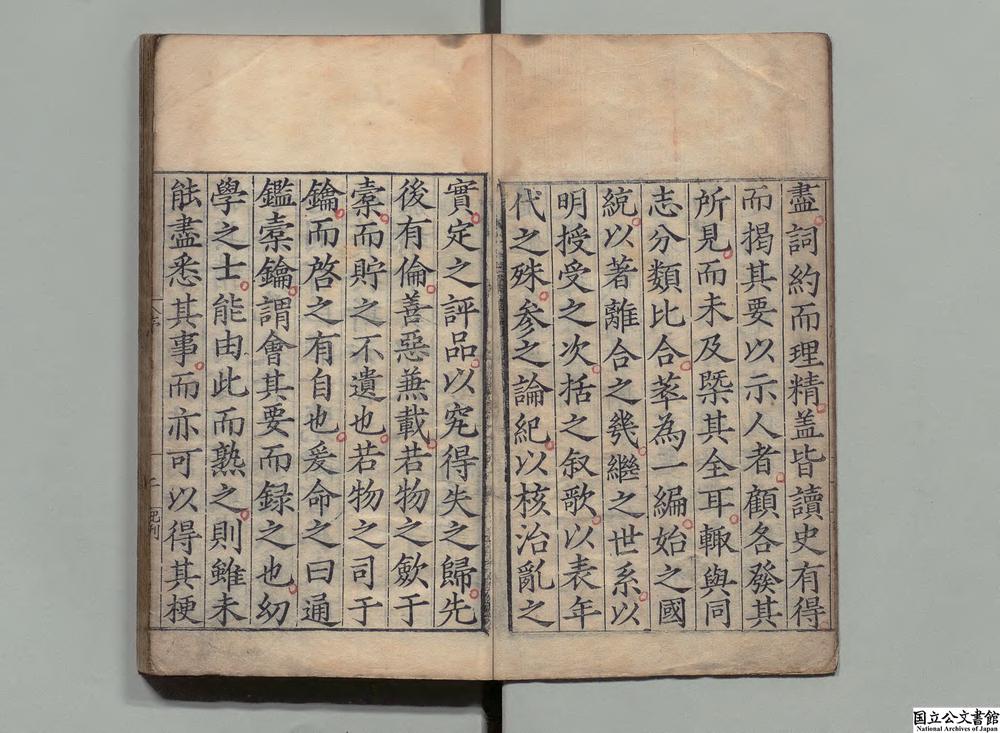 盡詞約而理精盖皆讀史有得
而揭其要以示人者顧各發其
所見而未及槩其全耳輙與同
志分類比合萃為一編始之國
統以著離合之幾繼之世系以
明授受之次括之叙歌以表年
代之殊参之論紀以核治亂之
實定之評品以究得失之歸先
後有倫善惡兼載若物之歛于
橐而貯之不遺也若物之司于
鑰而啓之有自也爰命之曰通
鑑橐鑰謂會其要而録之也初
學之士能由此而熟之則雖未
能盡悉其事而亦可以得其梗
国立公文書館
National Archives of Japan